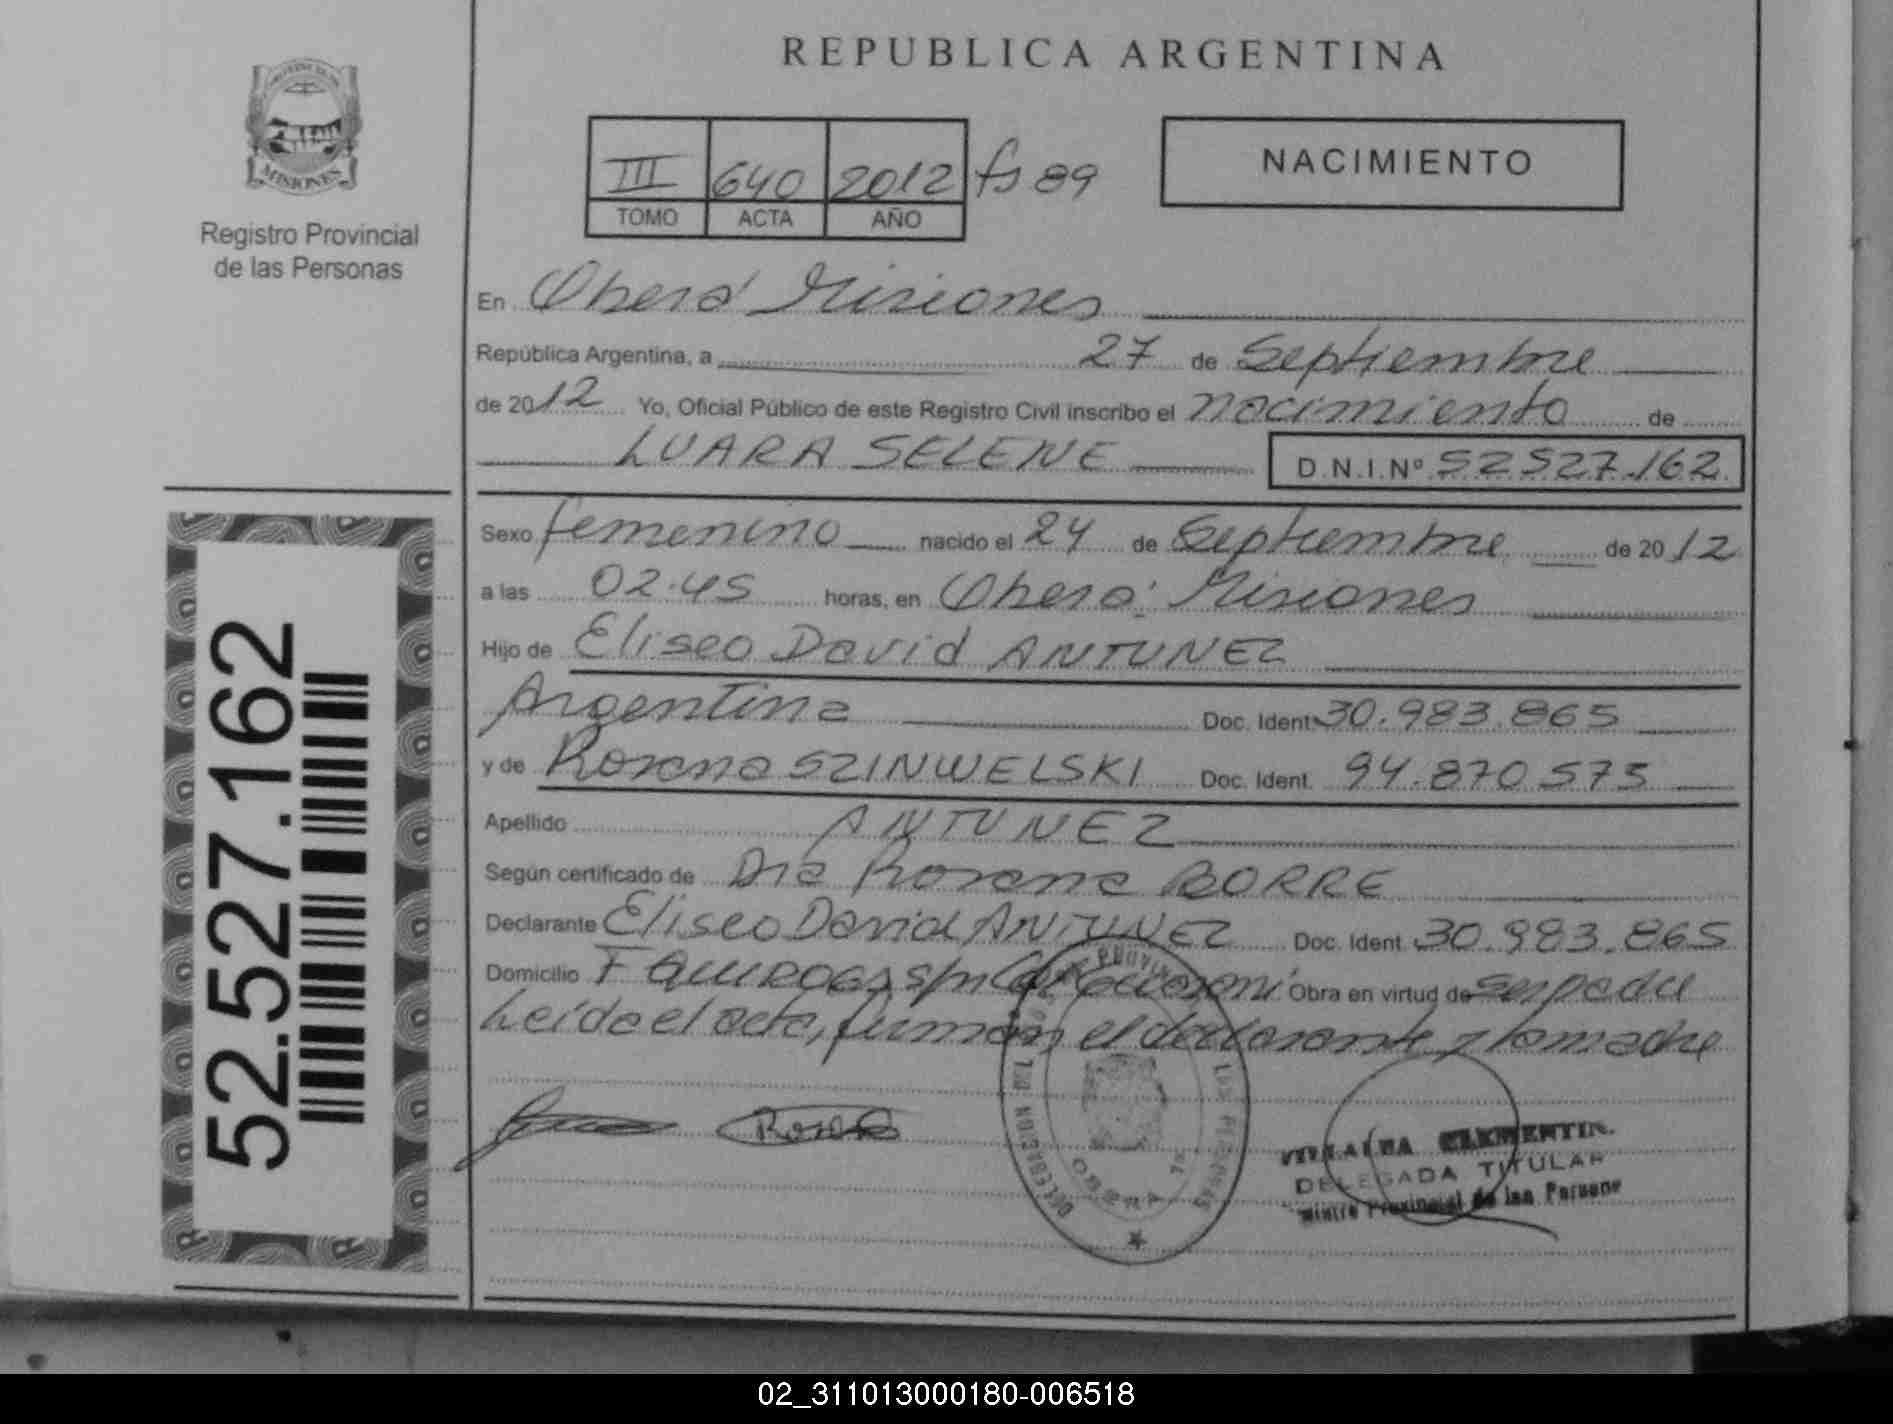 REPUBLICA ARGENTINA
PROVINCIA DE
MISIONES
Registro Provincial
de las Personas
III 640 2012 fs 89
TOMO ACTA AÑO
NACIMIENTO
En Oberá Misiones
República Argentina, a 27 de Septiembre
de 2012 Yo, Oficial Público de este Registro Civil inscribo el nacimiento de
LUARA SELENE D.N.I.Nº 52 527.162
Sexo femenino nacido el 24 de Septiembre de 2012
a las 02.45 horas, en Oberá Misiones
Hijo de Eliseo David ANTUNEZ
Argentina Doc. Ident. 30.983.865
y de Rosana SZINWELSKI Doc. Ident. 94.870 575
Apellido ANTUNEZ
Según certificado de Dra Rosana BORRE
Declarante Eliseo David ANTUNEZ Doc. Ident. 30.983.865
Domicilio s/n Obra en virtud de
Leída el acta, firman el declarante y la madre
Rosana
DELEGACION
LAS PERSONAS
OBERA
VILLALBA CLEMENTIN
DELEGADA TITULAR
Provincial de las Persona
52.527.162
02_311013000180-006518